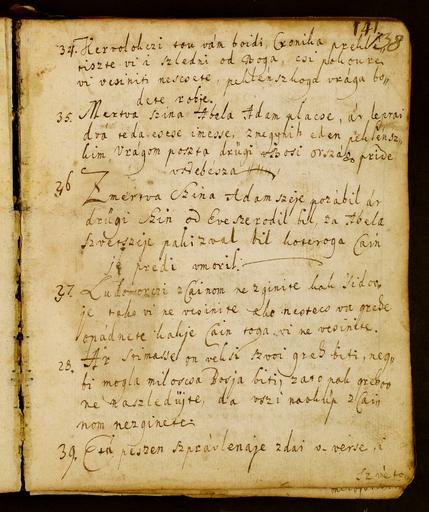 141
38
34. Hervolokczi tou vám boidi, Cronika
tiszte vi i szledni od Boga, csi pokoure
vi vcsiniti nescsete, peklenszkoga vrága bo-
dete robje.
35. Mertva szina Abela Adam placse, ár
drá teda csese imesse, znegovih eden peklensz-
kim Vragom poszta drügi Bosi ország pride
v Nebesza
36 Z mertva Szina Adam szeje pozábil ár
drügi Szin od Eve szerodil bil, za Abela
Szvetszeje pali zval bil koteroga Cain
je predi vmoril.
37. Lüdomorczi z Cainom ne zginite kak Sidov
je tako vi ne vcsinite
opádnete kakje Cain toga vi ne vcsinite.
28. Ar stimassel on veksi szvoi greh biti, neg
bi mogla miloscsa Bosja biti, zato pak grehov
ne naszledüjte, da vszi navküp z Cai
nom nezginete.
39. Eta peszen szprávlenaje zdai v verse, i
szvéto